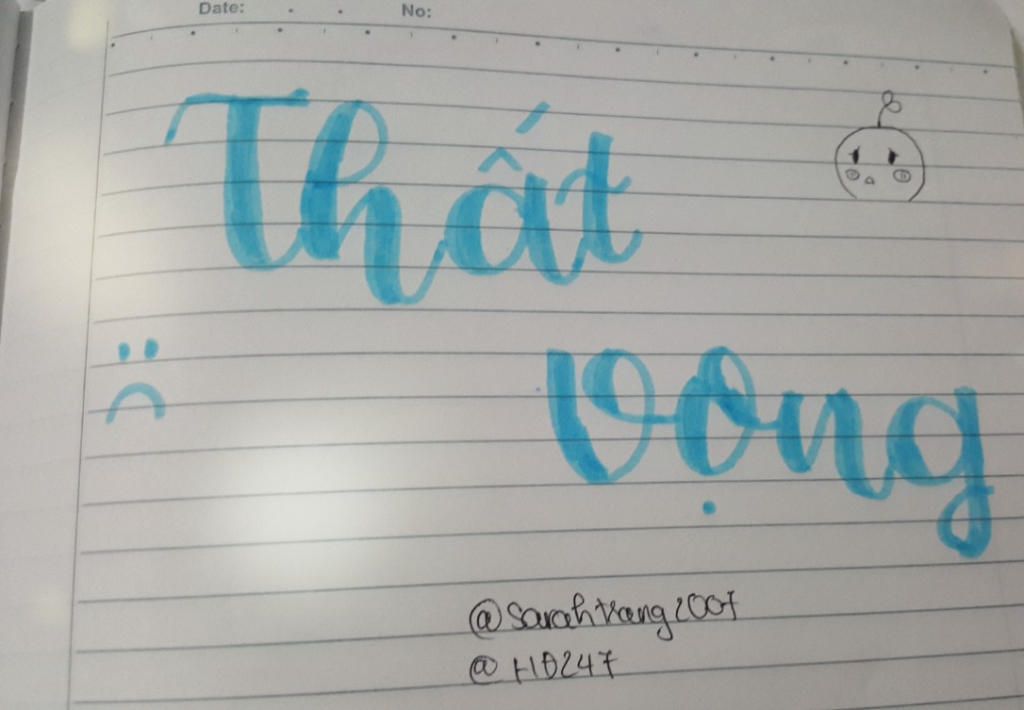 Date: No:
Thất
Vọng
@Sarahtrang2007
@HD247